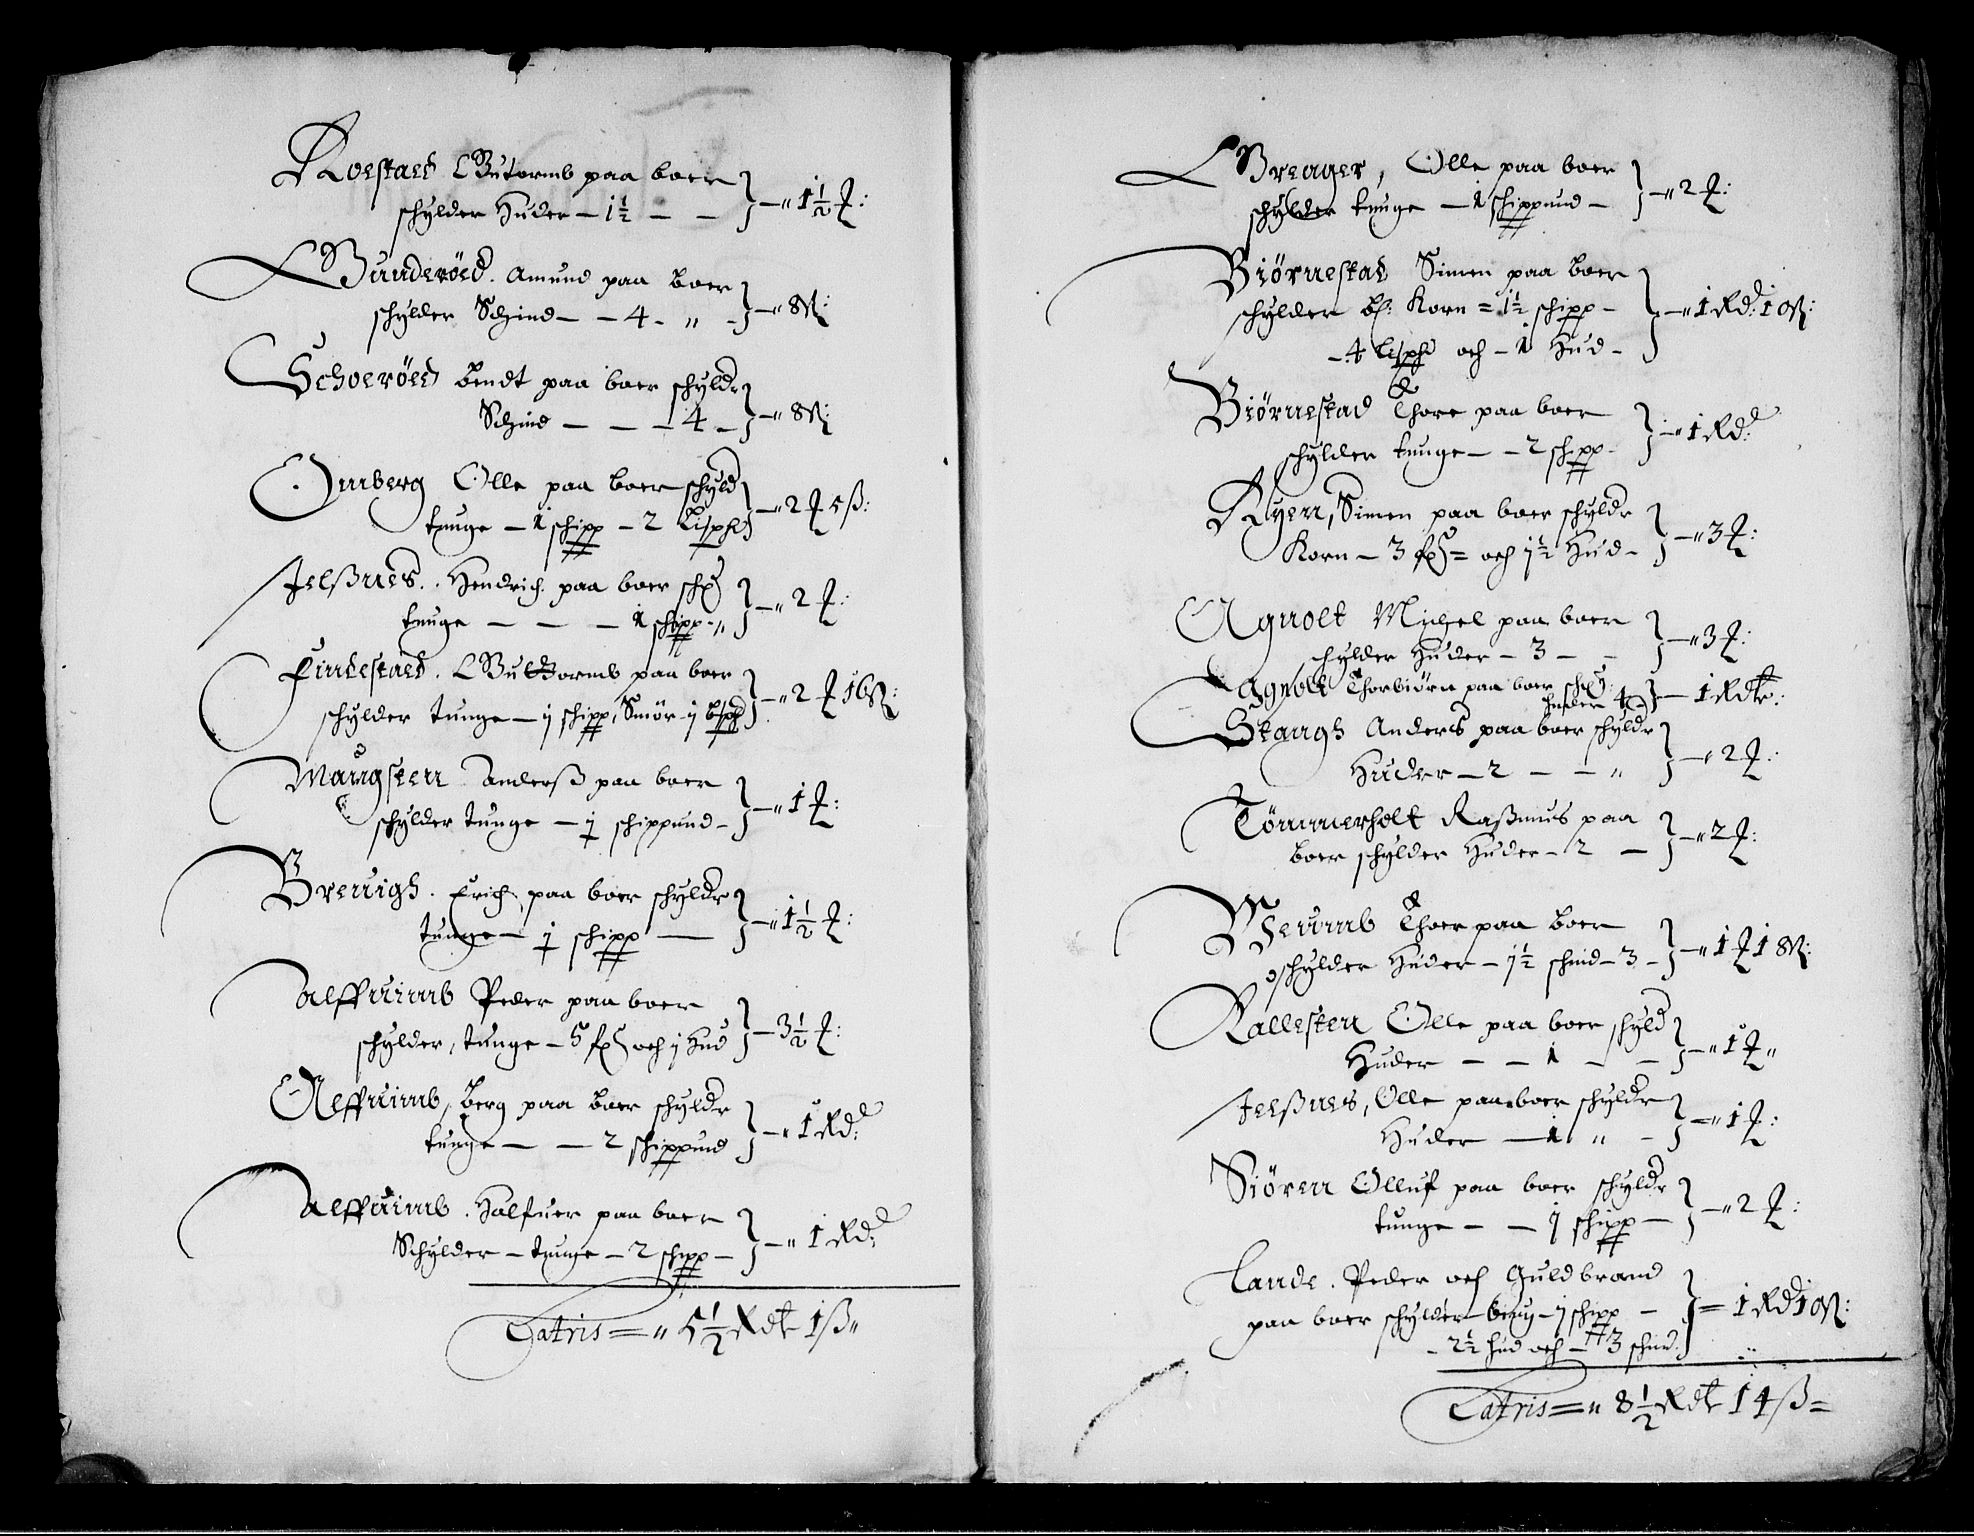 Roestaed Gutormb paa boer
schylder Huder – 1½ – – } –„ 1½ ₰:
Gunderöed. Amund paa boer
schylder Schind – – 4 – „ – } –„ 8 ß:
Schoeröed Bendt paa boer schyldr
Schind – – – 4 – } –„ 8 ß:
Omberg Olle paa boer schyld
tunge – 1 schipp – 2 Lispd } –„ 2 ₰ 5 ß:
Jelßnes. Hendrich paa boer sch
tunge – – – 1 schipp – „ } –„ 2 ₰:
Findestaed. Guttormb paa boer
schylder tunge – j schipp, Smör – j bspd } –„ 2 ₰ 16 ß:
Maugsterr Anderß paa boer
schylder tunge – j schippund – } –„ 1 ₰:
Brenigh. Erich paa boer schyldr
tunge – j schipp – } –„ 1½ ₰:
Alffuimb Peder paa boer
schylder, tunge – 5 och j Hud } – 3½ ₰:
Alffuimb, Berg paa boer schyldr
tunge – – 2 schippund } –„ 1 Rd:
Alffuimb. Halfuer paa boer
Schylder – tunge – 2 schipp – } –„ 1 Rd:
Latris = „ 5½ Rdr 1 ß „
Breager, Olle paa boer
schylder tunge – 1 schippund – } –„ 2 ₰:
Biörnestad Simen paa boer
schylder Bl: Korn = 1½ schipp –
– 4 Lispd och – 1 Hud – } –„ 1 Rd: 10 ß:
Biörnestad Thore paa boer
schylder tunge – – 2 schipp – } –„ 1 Rd:
Ryerr, Simen paa boer schyldr
Korn – 3 = och j½ Hud – } –„ 3 ₰:
Agnolt Michel paa boer
schylder Huder – 3 – – } –„ 3 ₰:
Agnolt Thorbiörn paa boer schy:
Huder 4 } – 1 Rdr:
Stangh Anders paa boer schyldr
Huder – 2 – – „ } –„ 2 ₰:
Tömmerholt Raßmus paa
boer schylder Huder – 2 – } –„ 2 ₰:
Thoer paa boer
schylder Huder – j½ schind – 3 – } –„ 1 ₰ 18 ß:
Kallesterr Olle paa boer schyld
Huder – – 1 – – } –„ 1 ₰ „
Jelßnes, Olle paa boer schyldr
Huder – 1 „ – } =„ 1 ₰:
Siörerr Olluf paa boer schyldr
tunge – – j schipp – } –„ 2 ₰:
Lande. Peder och Guldbrand
paa boer schylder – – j schipp –
– 2½ hud och – 3 schind. } = 1 Rd 10 ß:
Latris = „ 8½ Rdr 14 ß =